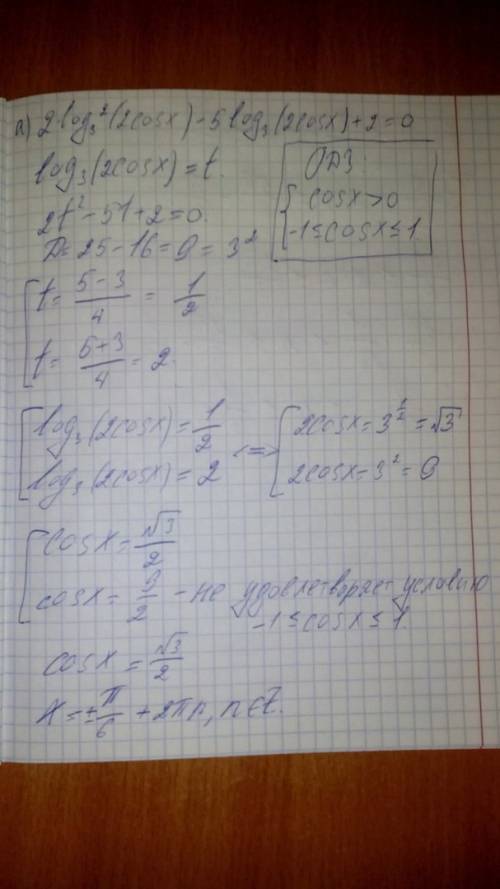 а) 2log₃²(2cosx) - 5log₃(2cosx) + 2 = 0
log₃(2cosx) = t.
ОДЗ:
cosx > 0
-1 ≤ cosx ≤ 1
2t² - 5t + 2 = 0.
D = 25 - 16 = 9 = 3²
t = (5-3)/4 = 1/2
t = (5+3)/4 = 2.
log₃(2cosx) = 1/2
log₃(2cosx) = 2
<=>
2cosx = 3^(1/2) = √3
2cosx = 3² = 9
cosx = √3/2
cosx = 9/2 - не удовлетворяет условию
-1 ≤ cosx ≤ 1.
cosx = √3/2
x = ±π/6 + 2πn, n ∈ Z.